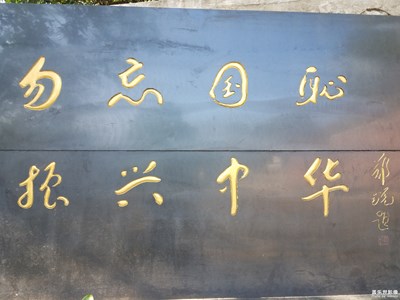 勿忘国耻
振兴中华